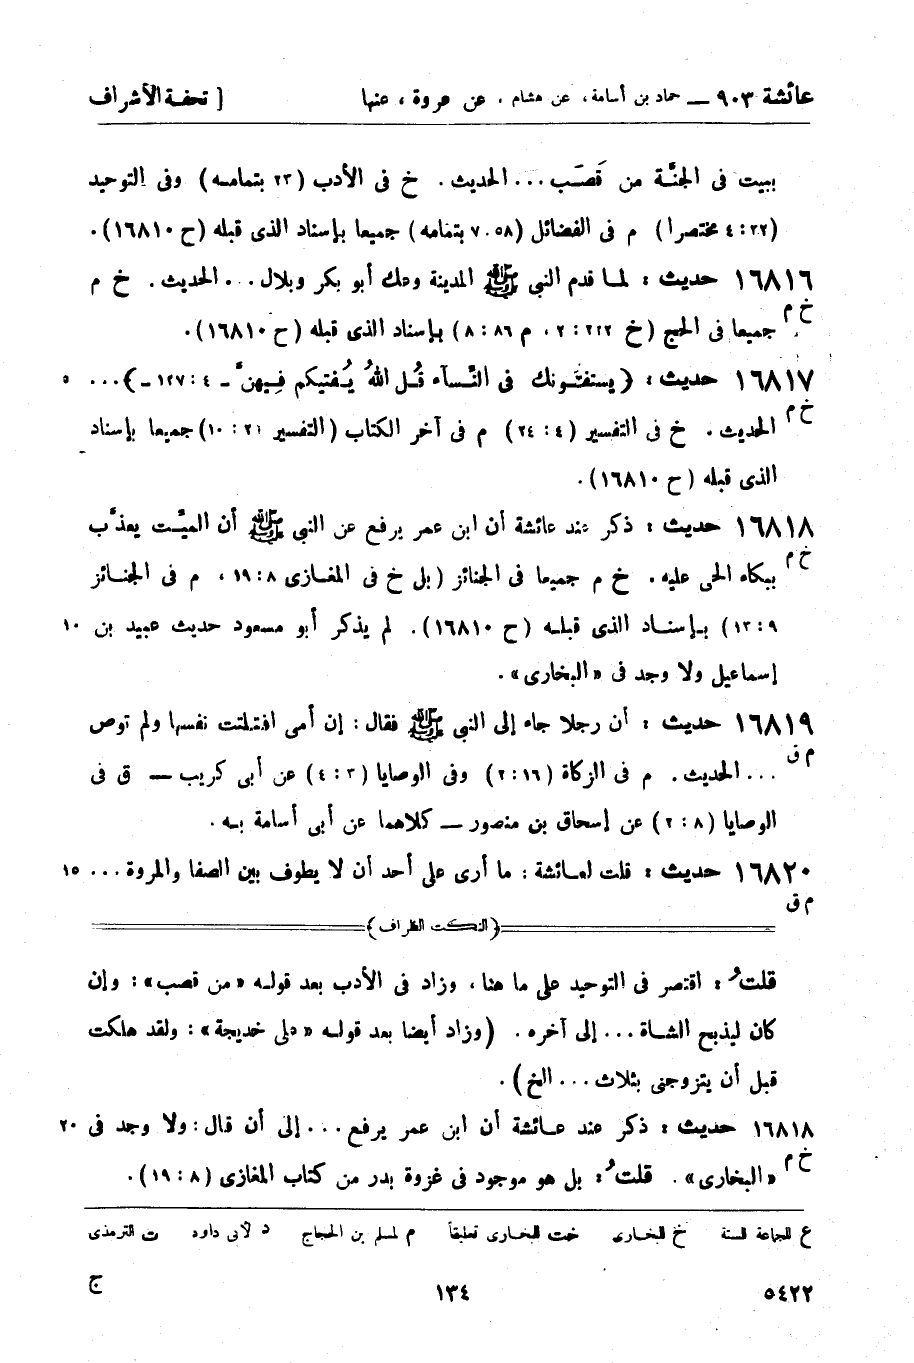 عائشة ٩٠٣ — حماد بن أسامة، عن هشام، عن عروة، عنها [ تحفة الأشراف
ببيت فى الجنَّة من قَصَب ... الحديث. خ فى الأدب (٢٣ بتمامه) وفى التوحيد
(٤:٣٢ مختصرا) م فى الفضائل (٧.٥٨ بتمامه) جميعا بإسناد الذى قبله (ح ١٦٨١٠).
١٦٨١٦ حديث: لما قدم النبي ﷺ المدينة وعك أبو بكر وبلال ... الحديث. خ م
خ م جميعا فى الحج (خ ٢:٢١٢، م ٨:٨٦) بإسناد الذى قبله (ح ١٦٨١٠).
١٦٨١٧ حديث: (يستفتونك فى النِّسآء قُل اللهُ يُفتيكم فِيهنَّ ـ ١٢٧:٤ ـ) ... ٥
خ م الحديث. خ فى التفسير (٢٤:٤) م فى آخر الكتاب (التفسير ١٠:٢١) جميعا بإسناد
الذى قبله (ح ١٦٨١٠).
١٦٨١٨ حديث: ذكر عند عائشة أن ابن عمر يرفع عن النبي ﷺ أن الميَّت يعذَّب
خ م ببكاء الحى عليه. خ م جميعا فى الجنائز (بل خ فى المغازى ١٩:٨، م فى الجنائز
١٣:٩) بإسناد الذى قبله (ح ١٦٨١٠). لم يذكر أبو مسعود حديث عبيد بن ١٠
إسماعيل ولا وجد فى «البخارى».
١٦٨١٩ حديث: أن رجلا جاء إلى النبي ﷺ فقال: إن أمى افتلتت نفسها ولم توص
م ق ... الحديث. م فى الزكاة (٢:١٦) وفى الوصايا (٤:٣) عن أبى كريب — ق فى
الوصايا (٢:٨) عن إسحاق بن منصور — كلاهما عن أبى أسامة به.
١٦٨٢٠ حديث: قلت لعائشة: ما أرى على أحد أن لا يطوف بين الصفا والمروة ... ١٥
م ق
(النكت الظراف)
قلتُ: اقتصر فى التوحيد على ما هنا، وزاد فى الأدب بعد قوله «من قصب»: وإن
كان ليذبح الشاة ... إلى آخره. (وزاد أيضا بعد قوله «على خديجة»: ولقد هلكت
قبل أن يتزوجنى بثلاث ... الخ).
١٦٨١٨ حديث: ذكر عند عائشة أن ابن عمر يرفع ... إلى أن قال: ولا وجد فى ٢٠
خ م «البخارى». قلتُ: بل هو موجود فى غزوة بدر من كتاب المغازى (١٩:٨).
ع للجماعة الستة خ للبخارى خت للبخارى تعليقاً م لمسلم بن الحجاج د لأبى داود ت الترمذى
٥٤٢٢ ١٣٤ ج